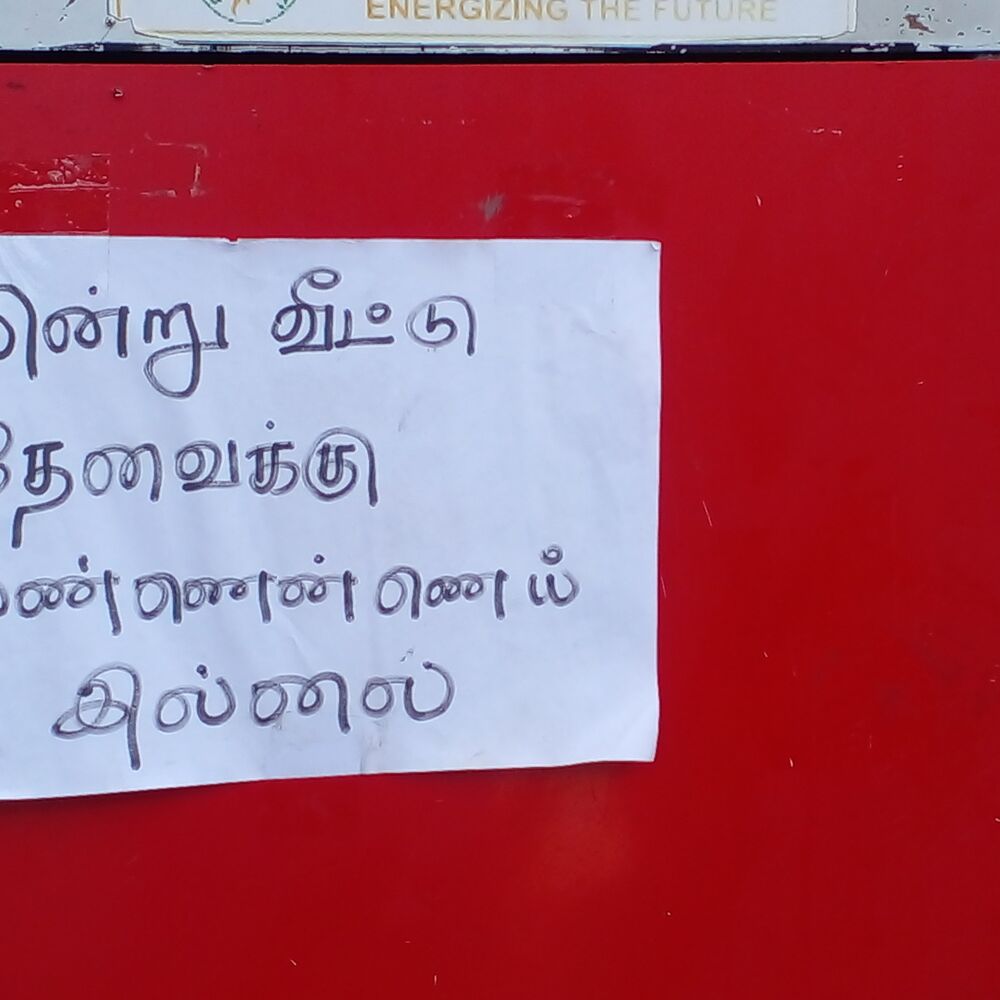 ENERGIZING THE FUTURE
இன்று வீட்டு
தேவைக்கு
மண்ணெண்ணெய்
இல்லை